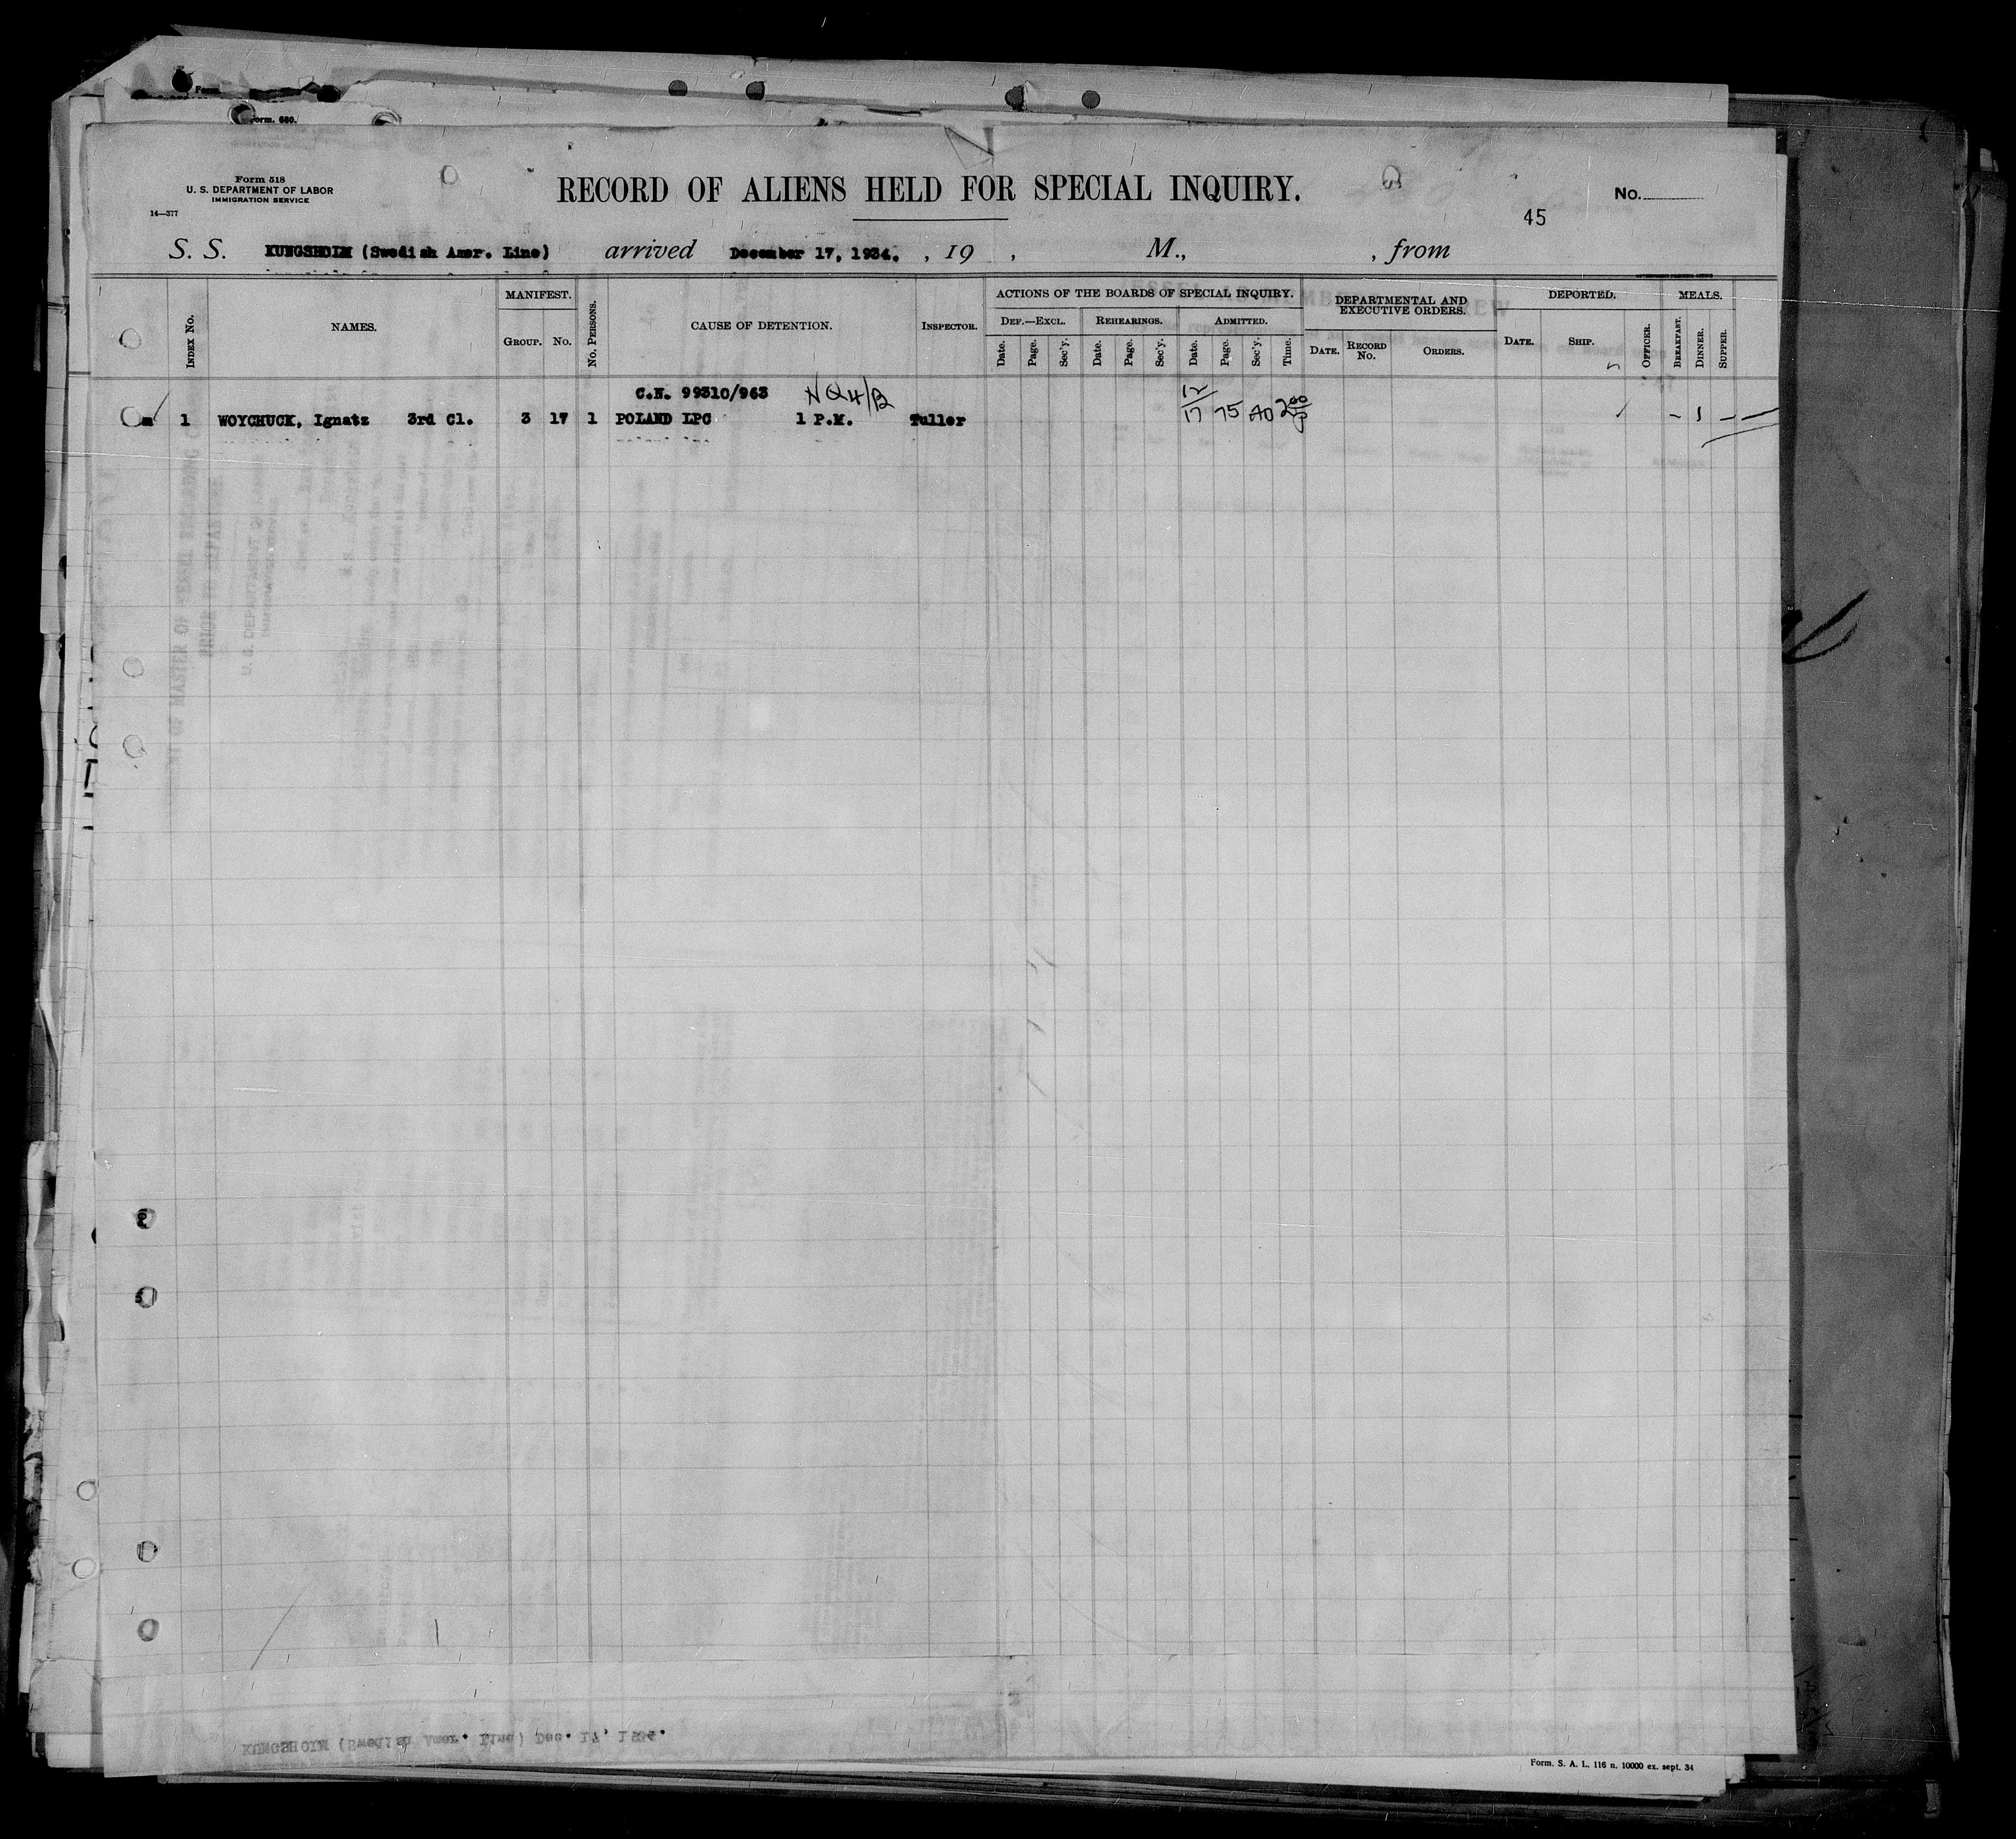 Form
Form. 680.
Form 518
U. S. DEPARTMENT OF LABOR
IMMIGRATION SERVICE
14—377
RECORD OF ALIENS HELD FOR SPECIAL INQUIRY.
No.
45
S. S. KUNGSHOLM (Swedish Amer. Line) arrived December 17, 1934. , 19 , M., , from
INDEX No.
NAMES.
MANIFEST.
GROUP. No.
No. PERSONS.
CAUSE OF DETENTION.
INSPECTOR.
ACTIONS OF THE BOARDS OF SPECIAL INQUIRY.
DEF.—EXCL. REHEARINGS. ADMITTED.
Date. Page. Sec'y. Date. Page. Sec'y. Date. Page. Sec'y. Time.
DEPARTMENTAL AND EXECUTIVE ORDERS.
DATE. RECORD No. ORDERS.
DEPORTED.
DATE. SHIP. OFFICER.
MEALS.
BREAKFAST. DINNER. SUPPER.
C.N. 99310/963
m 1 WOYCHUCK, Ignatz 3rd Cl. 3 17 1 POLAND LPC 1 P.M. Tuller 12/17 75 AO 2 00 - 1 -
KUNGSHOLM (Swedish Amer. Line) Dec. 17, 1934.
Form. S. A. L. 116 n. 10000 ex. sept. 34